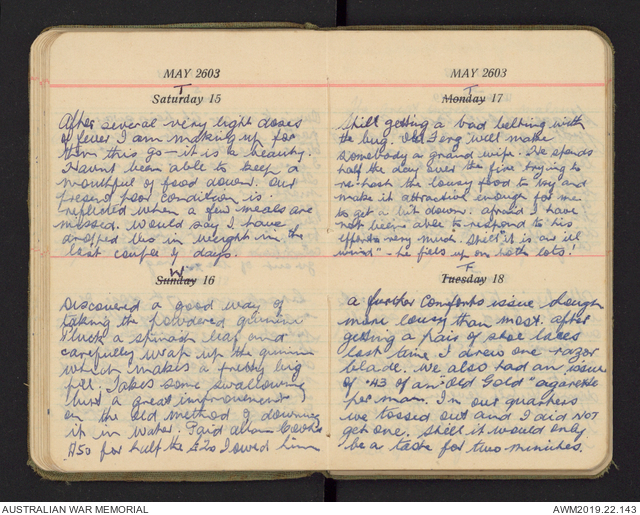 MAY 2603
T
Saturday 15
After several very light doses
of fever I am making up for
them this go – it is a beauty.
Havnt been able to keep a
mouthful of food down. Our
present poor condition is
reflected when a few meals are
missed. Would say I have
dropped lbs in weight in the
last couple of days.
W
Sunday 16
Discovered a good way of
taking the powdered quinine
Pluck a spinash leaf and
carefully wrap up the quinine
which makes a pretty big
pill. Takes some swallowing
but a great improvement
on the old method of downing
it in water. Paid Allan
for half the £20 I owed him
MAY 2603
T
Monday 17
Still getting a bad belting with
the bug. Old Ferg will make
somebody a grand wife. He spends
half the day over the fire trying to
re-hash the lousy food to try and
make it attractive enough for me
to get a bit down. Afraid I have
not been able to respond to his
efforts very much. Still "it is an ill
wind" – he fills up on both lots!
F
Tuesday 18
A further Comforts issue though
more lousy than most. After
getting a pair of shoe laces
last time I drew one razor
blade. We also had an issue
of .43 of an "Old Gold" cigarette
per man. In our quarters
we tossed out and I did NOT
get one. Still it would only
be a taste for two minutes.
AUSTRALIAN WAR MEMORIAL
AWM2019.22.143